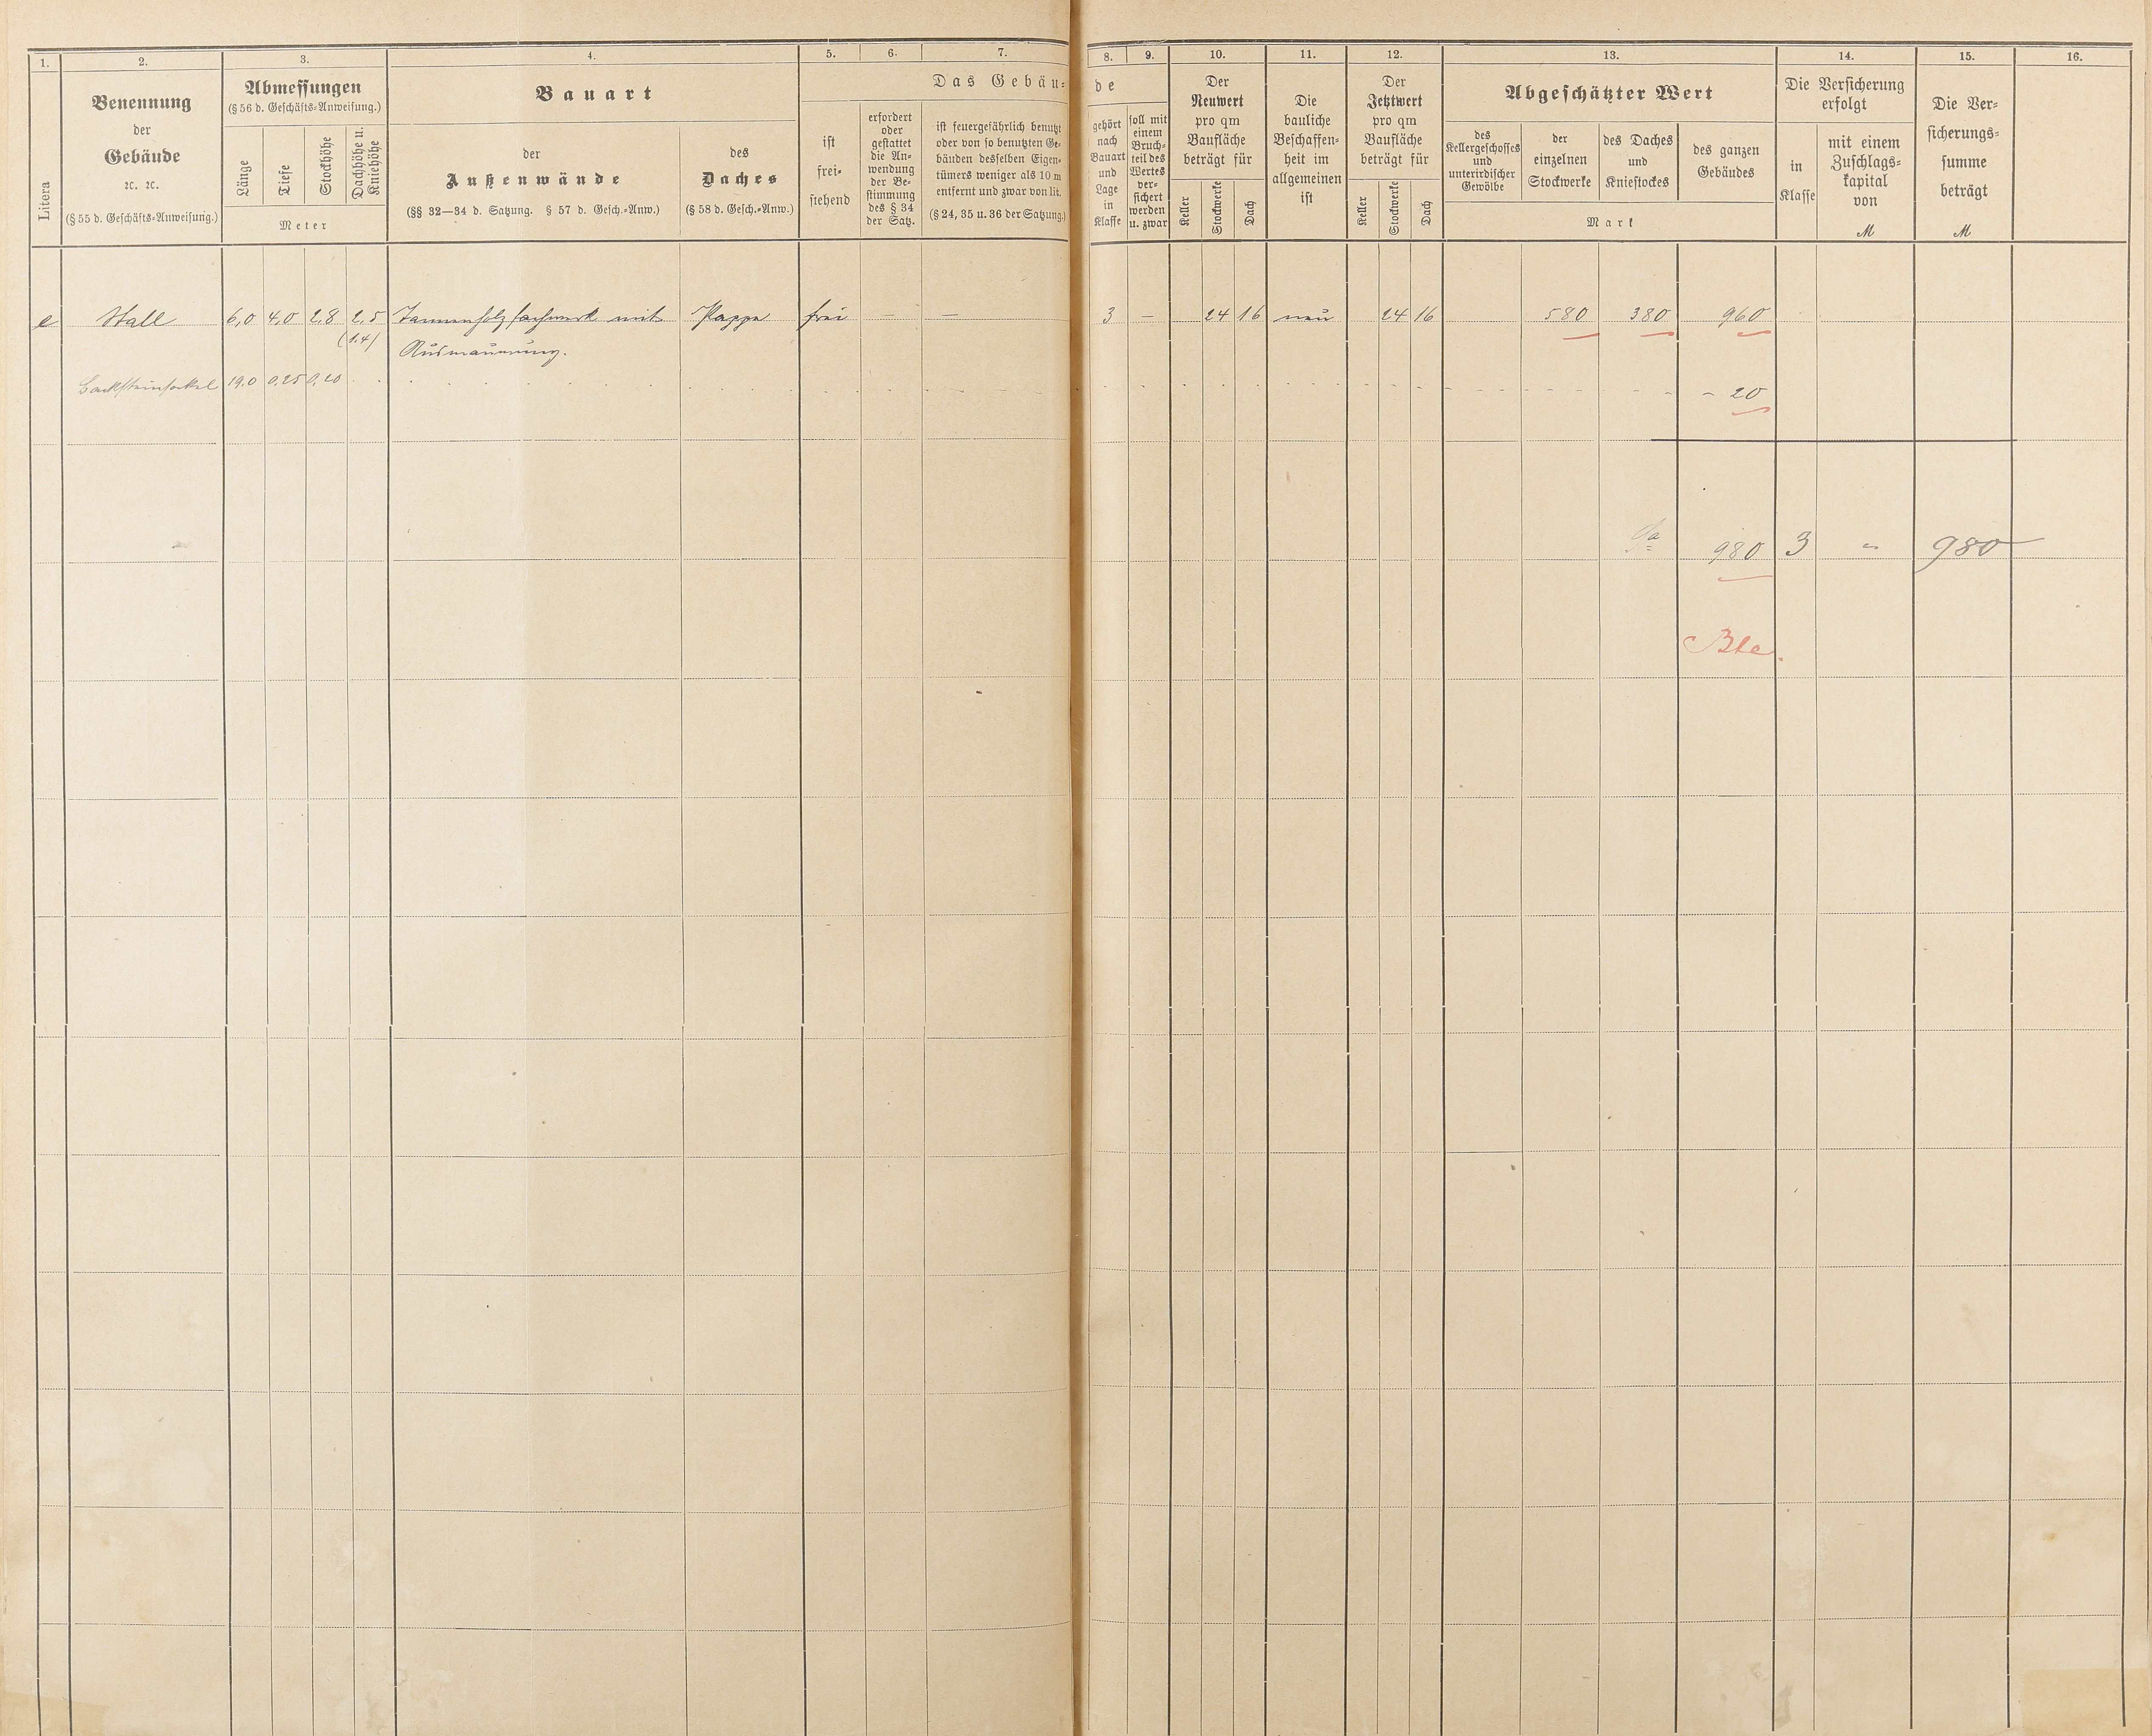 1. 2. 3. 4. 5. 6. 7. 8. 9. 10. 11. 12. 13. 14. 15. 16.
Litera
Benennung
der
Gebäude
ꝛc. ꝛc.
(§ 55 d. Geschäfts-Anweisung.)
Abmessungen
(§ 56 d. Geschäfts-Anweisung.)
Länge
Tiefe
Stockhöhe
Dachhöhe u.
Kniehöhe
Meter
Bauart
der
Außenwände
(§§ 32—34 d. Satzung. § 57 d. Gesch.-Anw.)
des
Daches
(§ 58 d. Gesch.-Anw.)
Das Gebäu-
ist
frei-
stehend
erfordert
oder
gestattet
die An-
wendung
der Be-
stimmung
des § 34
der Satz.
ist feuergefährlich benutzt
oder von so benutzten Ge-
bäuden desselben Eigen-
tümers weniger als 10 m
entfernt und zwar von lit.
(§ 24, 35 u. 36 der Satzung.)
de
gehört
nach
Bauart
und
Lage
in
Klasse
soll mit
einem
Bruch-
teil des
Wertes
ver-
sichert
werden
u. zwar
Der
Neuwert
pro qm
Baufläche
beträgt für
Keller
Stockwerke
Dach
Die
bauliche
Beschaffen-
heit im
allgemeinen
ist
Der
Jetztwert
pro qm
Baufläche
beträgt für
Keller
Stockwerke
Dach
Abgeschätzter Wert
des
Kellergeschosses
und
unterirdischer
Gewölbe
der
einzelnen
Stockwerke
des Daches
und
Kniestockes
des ganzen
Gebäudes
Mark
Die Versicherung
erfolgt
in
Klasse
mit einem
Zuschlags-
kapital
von
M
Die Ver-
sicherungs-
summe
beträgt
M
e Stall 6,0 4,0 2,8 2,5 Tannenholzfachwerk mit Pappe frei — — 3 — 24 16 neu 24 16 580 380 960
(1.4) Ausmauerung.
Backsteinsockel 19.0 0,25 0,20 - 20
Sa 980 3 " 980
Ble.